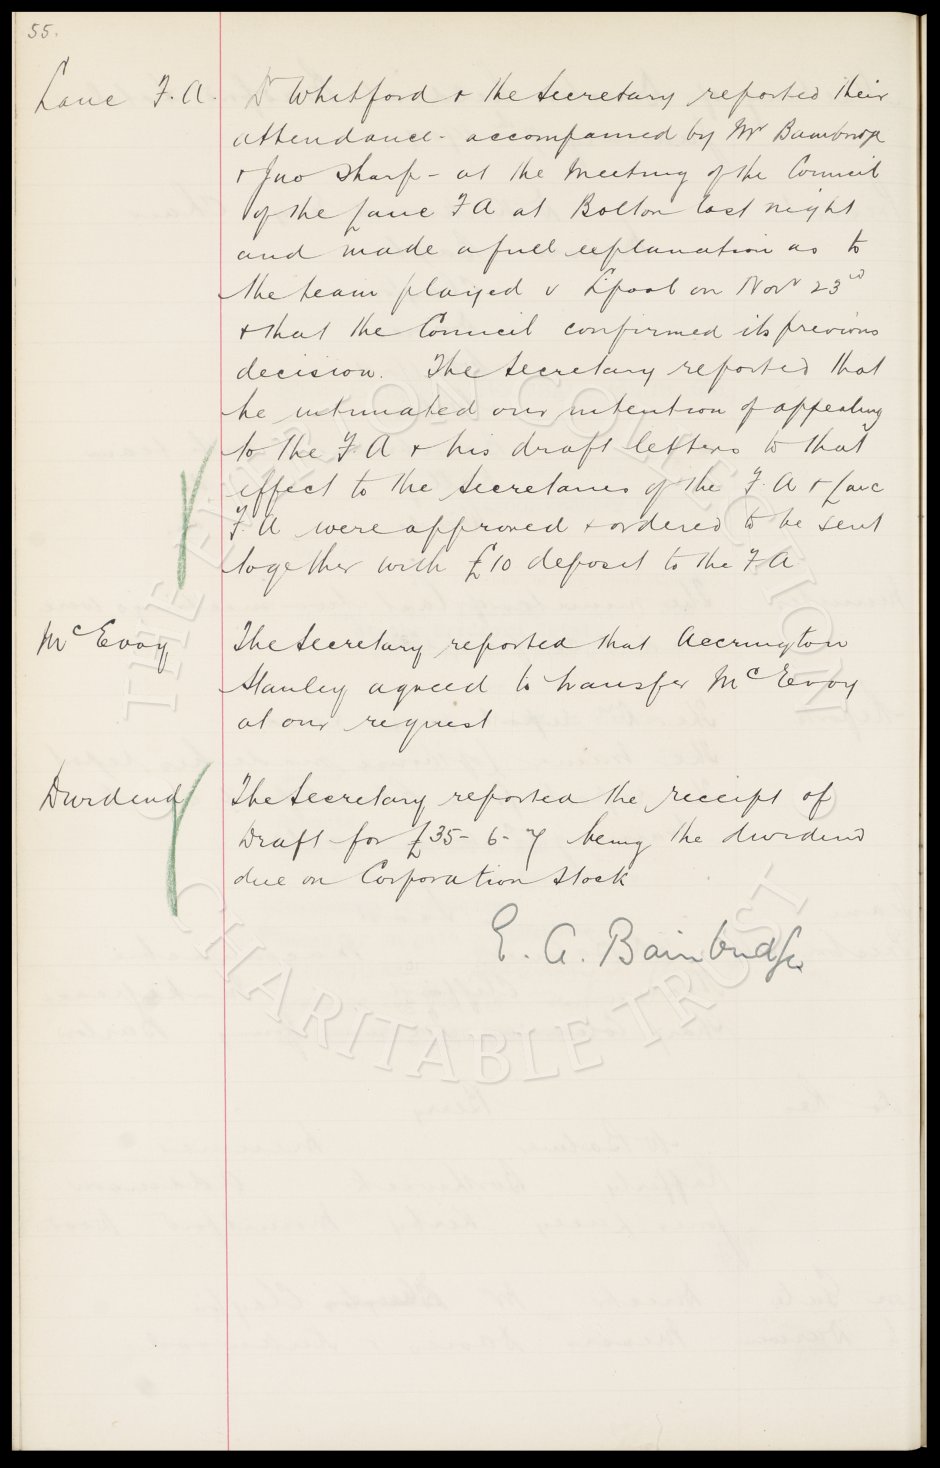 55.
Lanc F.A. Dr Whitford + the Secretary reported their
attendance - accompanied by Mr Bainbridge
+ Jno Sharp - at the Meeting of the Council
of the Lanc F A at Bolton last night
and made a full explanation as to
the team played v L'pool on Novr 23rd
+ that the Council confirmed its previous
decision. The Secretary reported that
he intimated our intention of appealing
to the F.A + his draft letters to that
effect to the Secretaries of the F.A + Lanc
F.A were approved + ordered to be sent
together with £10 deposit to the F.A
McEvoy The Secretary reported that Accrington
Stanley agreed to transfer McEvoy
at our request
Dividend The Secretary reported the receipt of
Draft for £35-6-7 being the dividend
due on Corporation Stock
E. A. Bainbridge
THE EVERTON COLLECTION
CHARITABLE TRUST